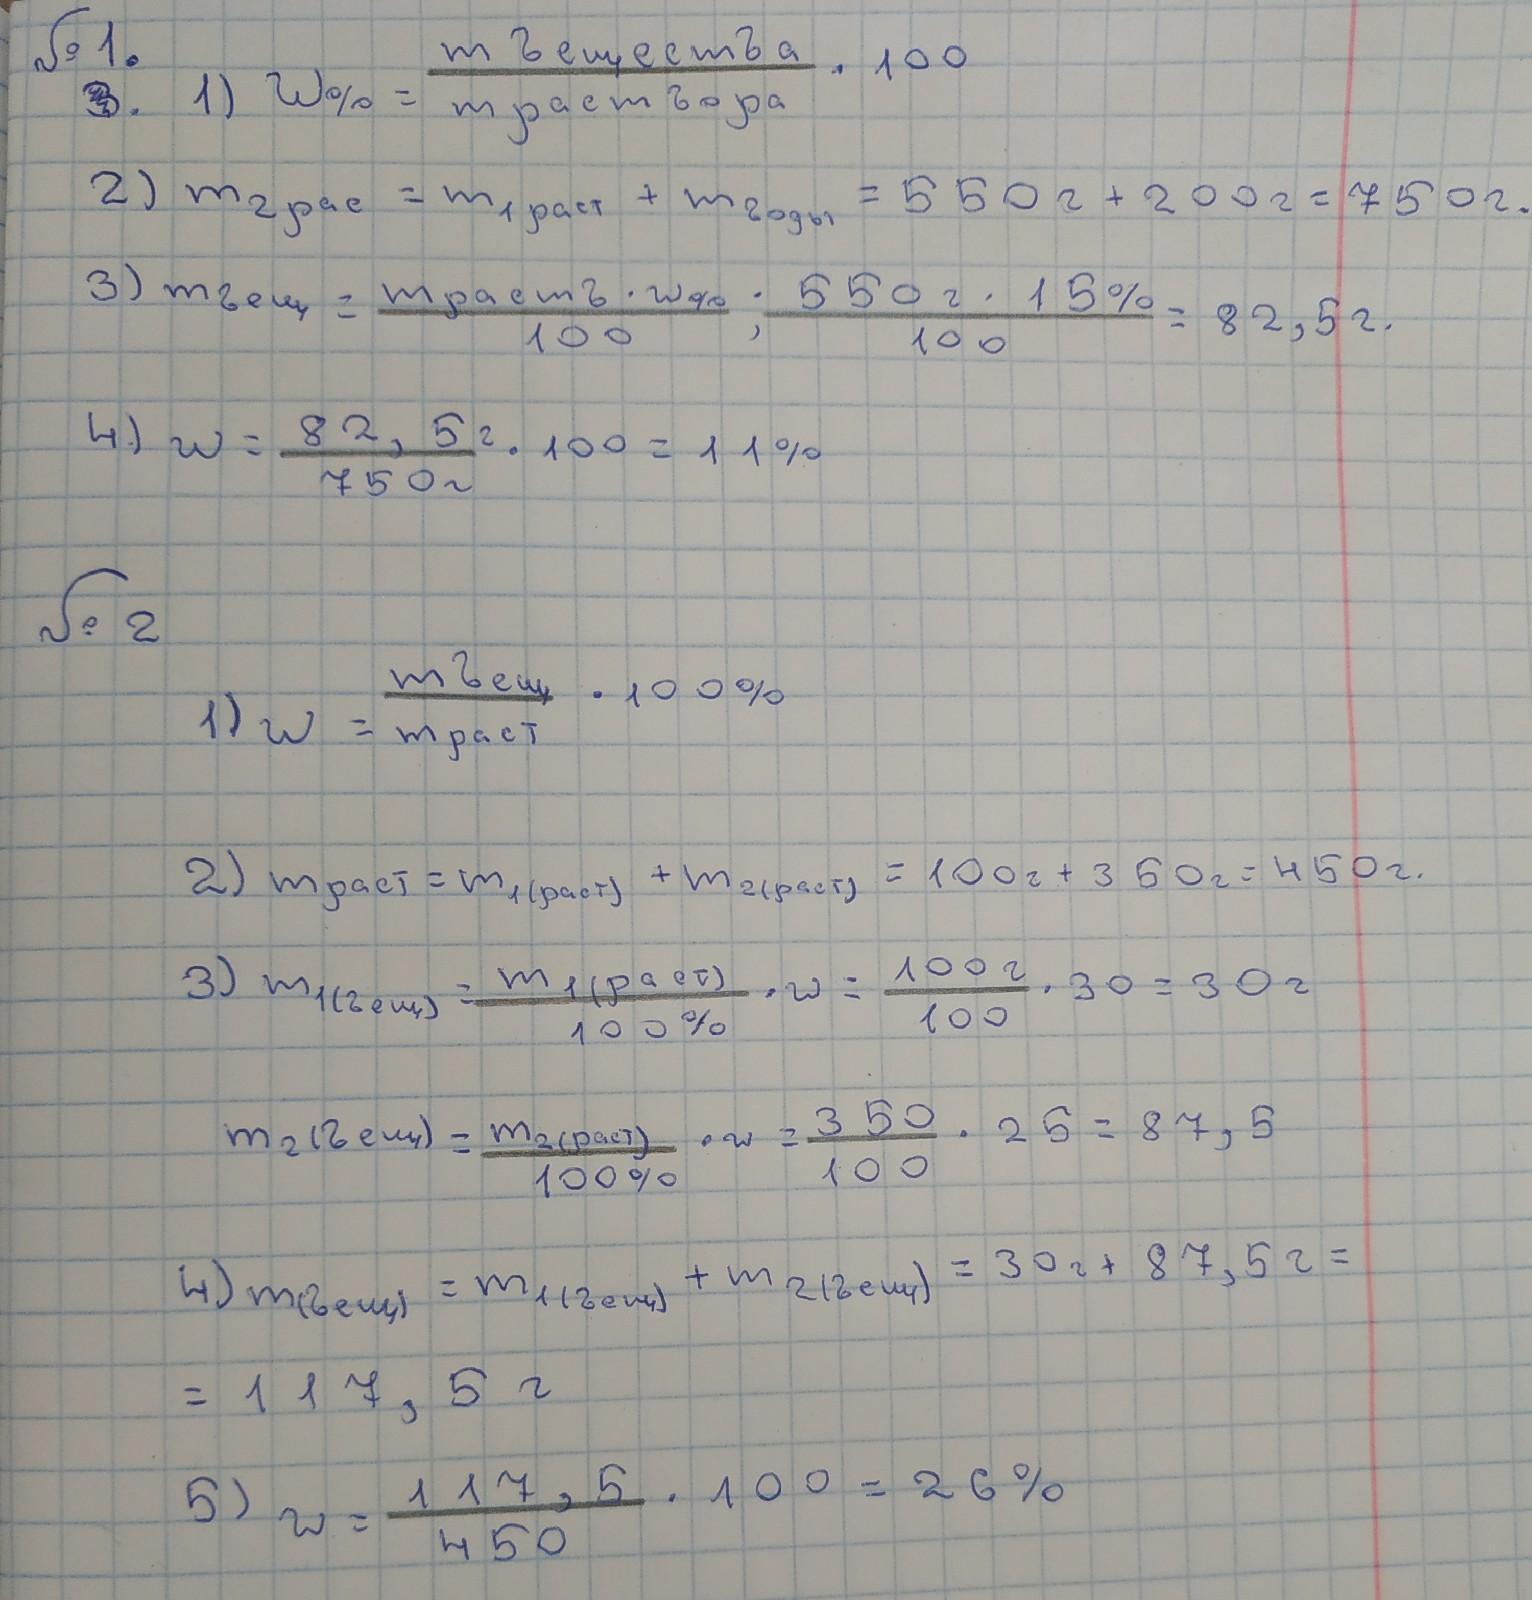 №1.
3. 1) W% = m вещества / m раствора · 100
2) m2рас = m1раст + mводы = 550г + 200г = 750г.
3) mвещ = mраств · w% / 100 ; 550г · 15% / 100 = 82,5г.
4) w = 82,5г / 750г · 100 = 11%
№2
1) w = mвещ / mраст · 100%
2) mраст = m1(раст) + m2(раст) = 100г + 350г = 450г.
3) m1(вещ) = m1(раст) / 100% · w = 100г / 100 · 30 = 30г
m2(вещ) = m2(раст) / 100% · w = 350 / 100 · 25 = 87,5
4) m(вещ) = m1(вещ) + m2(вещ) = 30г + 87,5г =
= 117,5 г
5) w = 117,5 / 450 · 100 = 26%